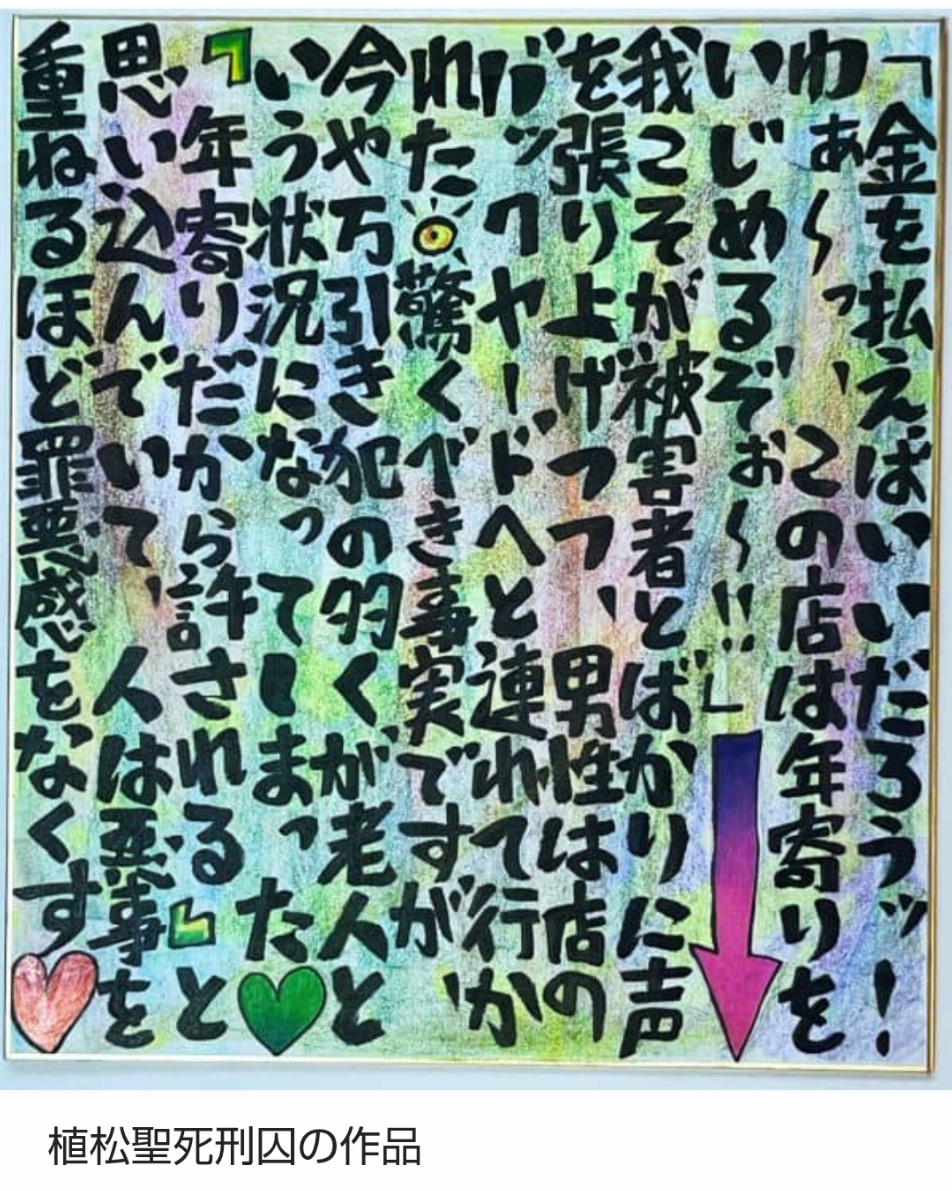 「金を払えばいいだろうッ！
わぁ〜っ、この店は年寄りを
いじめるぞぉ〜!!」
我こそが被害者とばかりに声
を張り上げつつ、男性は店の
バックヤードへと連れて行か
れた 驚くべき事実ですが、
今や万引き犯の多くが老人と
いう状況になってしまった
『年寄りだから許される』と
思い込んでいて、人は悪事を
重ねるほど罪悪感をなくす
植松聖死刑囚の作品